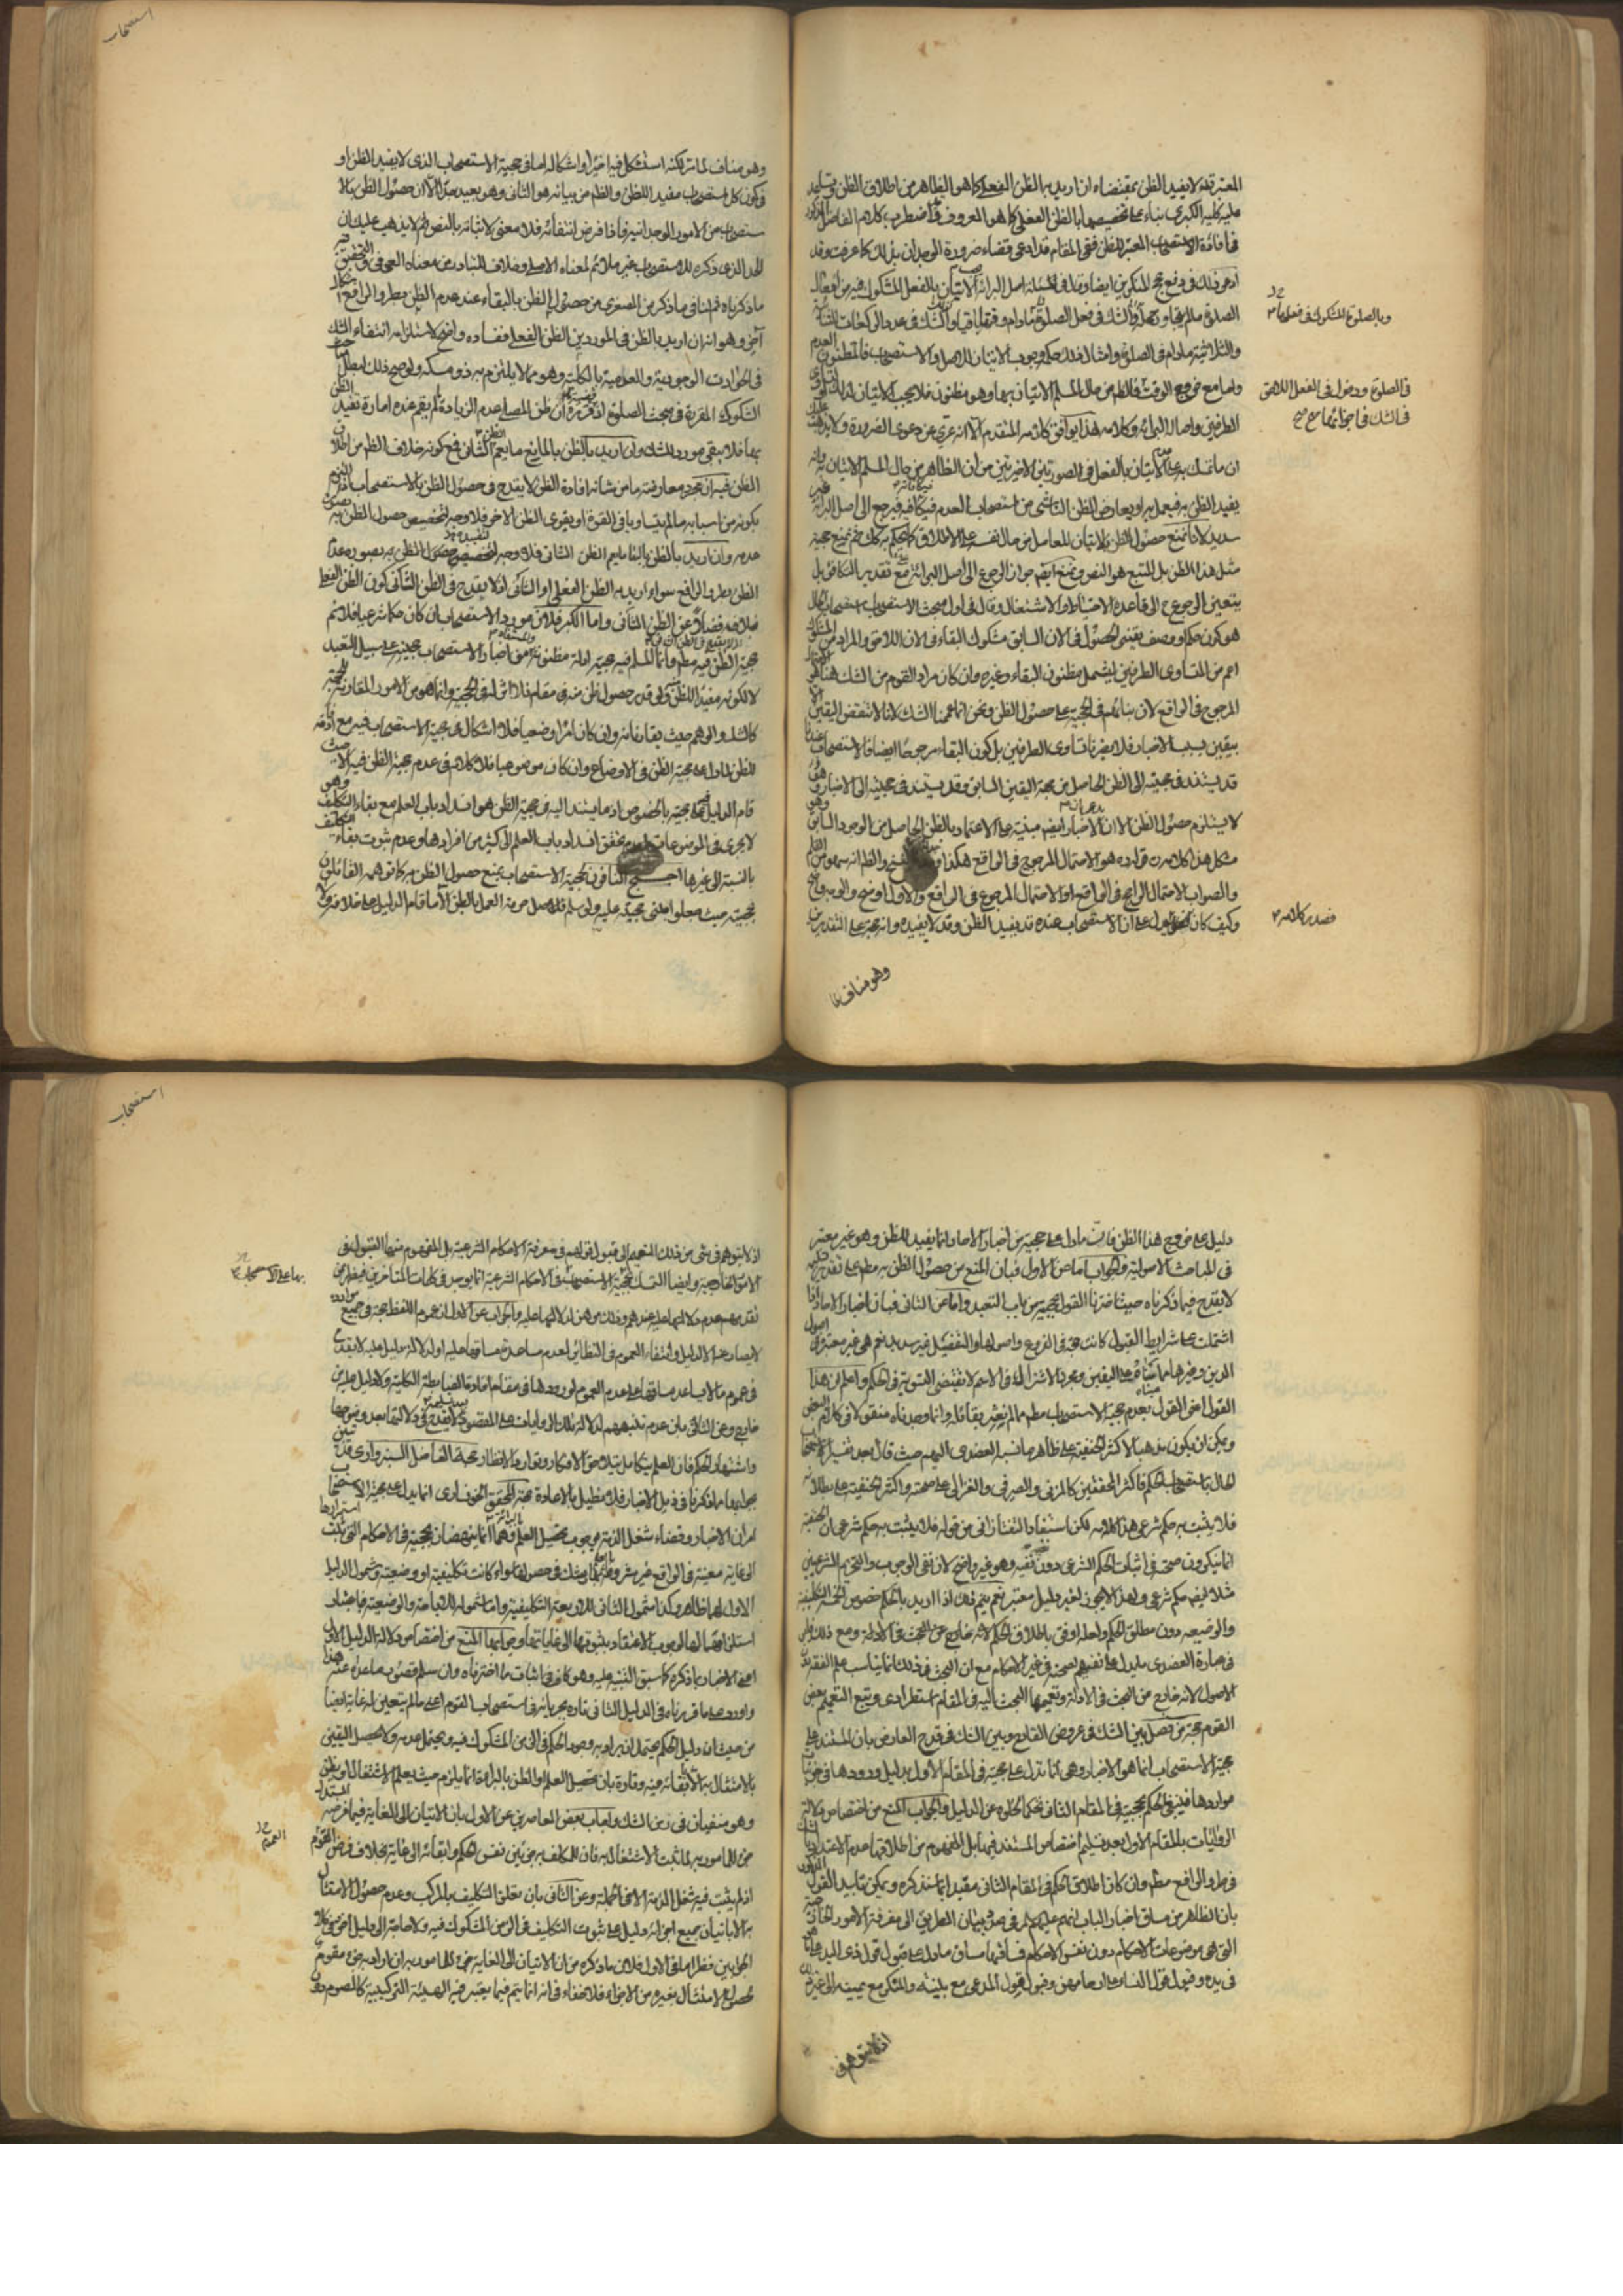 المعتبر قد لا يفيد الظن بمقتضاه ان اريد به الظن الفعلي كما هو الظاهر من اطلاق الظن
عليه كلية الكبرى بناء على تخصيصها بالظن الفعلي كما هو المعروف فما اضطرب كلام الفاضل
في افادة الاستصحاب المعتبر للظن ففي المقام قد ادعى قضاء ضرورة الوجدان بذلك كما عرفت وقد
ادعى ذلك في دفع حجج المنكرين ايضا وقال في مسئلة اصل البرائة الاتيان بالفعل المشكوك فيه من افعال
الصلوة ما لم يتجاوز محله والشك في فعل الصلوة ما دام وقتها باقيا والشك في عدد الركعات الثنائية
وبالصلوة المشكوك في فعلها
والثلاثية ما دام في الصلوة وامثال ذلك حكمه وجوب الاتيان للاصل والاستصحاب فالمظنون العدم
واما مع خروج الوقت فالظاهر من حال المسلم الاتيان بها وهو مظنون فلا يجب الاتيان
في الصلوة ودخول في الفعل اللاحق
في الشك في اجزائها
الطرفين واصالة البرائة وكلامه هذا يوافق كلامه المتقدم الا انه عري عن دعوى الضرورة
ان ما تمسك به على الاتيان بالفعل في الصورتين الاخيرتين من ان الظاهر من حال المسلم الاتيان به
يفيد الظن به فيعمل به او يعارض الظن الناشئ من استصحاب العدم فيكافئه فيرجع الى اصل البرائة غير
سديد لانا نمنع حصول الظن بالاتيان للعامل من حال نفسه على الاطلاق
مثل هذا الظن بل المتبع هو النص ونمنع ايضا جواز الرجوع الى اصل البرائة مع تقدير التكافؤ بل
يتعين الرجوع الى قاعدة الاحتياط والاشتغال وقال في اول مبحث الاستصحاب استصحاب الحال
هو كون حكم او وصف يقيني الحصول في الان السابق مشكوك البقاء في الان اللاحق والمراد من المشكوك
اعم من المتساوي الطرفين ليشمل مظنون البقاء وغيره وان كان مراد القوم من الشك هنا هو
المرجوح في الواقع لان بنائهم في الحجية على حصول الظن ونحن انما عممنا الشك لانا لا ننقض اليقين الا
بيقين بسبب الاخبار فلا يضرنا تساوي الطرفين بل كون البقاء مرجوحا ايضا فالاستصحاب عندنا
قد يستند في حجيته الى الظن الحاصل من جهة اليقين السابق وقد يستند في حجيته الى الاخبار وهو
لا يستلزم حصول الظن الا ان يدعى ان الاخبار ايضا مبنية على الاعتماد بالظن الحاصل من الوجود السابق وهو
مشكل هذا كلامه قوله هو الاحتمال المرجوح في الواقع هكذا والظاهر انه سهو من القلم
والصواب الاحتمال الراجح في الواقع او الاحتمال المرجوح في الواقع والاول اوضح
وكيف كان على ان الاستصحاب عنده قد يفيد الظن وقد لا يفيده وانه حجة على التقديرين
فصدر كلامه
وهو مناف
استصحاب
وهو مناف لما مر لكنه استشكل فيه اخيرا واشكاله اما في حجية الاستصحاب الذي لا يفيد الظن او
في كون كل استصحاب مفيد للظن والظاهر من بيانه هو الثاني وهو بعيد جدا الا ان حصول الظن بالا
ستصحاب من الامور الوجدانية فاذا فرض انتفائه فلا معنى لاثباته بالنص ثم لا يذهب عليك ان
الحد الذي ذكره للاستصحاب غير ملائم لمعناه الاصلي وخلاف المتبادر من معناه العرفي والتحقيق
ما ذكرناه ثم الثاني ما ذكر من الصغرى من حصول الظن بالبقاء عند عدم الظن بطرو الرافع
اخر وهو انه ان اريد بالظن في الموردين الظن الفعلي ففساده واضح لاستلزامه انتفاء الشك
في الحوادث الوجودية والعدمية بالكلية وهو مما لا يلتزم به ذو مسكة ولوضح ذلك ابطال
الشكوك المقررة في مبحث الصلوة اذ قضية ان ظن المصلي عدم الزيادة لم يقم عنده امارة تفيد الظن
بها فلا يبقى مورد للشك وان اريد بالظن بالمانع ما يعم الظن الثاني فمع كونه خلاف الظاهر من اطلاق
الظن فيه ان مجرد معارضته ما من شانه افادة الظن لا يقدح في حصول الظن بالاستصحاب
بكونه من اسبابه ما لم يتساويا في القوة او يقوى الظن الاخر فلا وجه لتخصيص حصول الظن به بصورة
عدمه وان اريد بالظن بالبقاء ما يعم الظن الثاني فلا وجه لتخصيص حصول الظن به بصورة عدم
الظن بطرو الرافع سواء اريد به الظن الفعلي او الثاني اذ لا يقدح في الظن الثاني كون الظن الفعلي
خلافه فضلا عن الظن الثاني واما الكبرى فلان مورد الاستصحاب ان كان حكما شرعيا فلا نسلم
حجية الظن فيه مطلقا وانما المسلم فيه حجية ادلة مظنونة اخبار الاستصحاب حجيته على سبيل التعبد
لا لكونه مفيدا للظن ولو قدر حصول ظن منه في مقام فلا اثر له في الحجية وانما هو من الامور المقارنة للحجة
كالشك والوهم حيث يقارنانه وان كان امرا وضعيا فلا اشكال في حجية الاستصحاب فيه مع افادته
للظن لما دل على حجية الظن في الاوضاع وان كان موضوعيا فلا كلام في عدم حجية الظن فيه الا حيث
قام الدليل على حجيته بالخصوص اذ ما يستند اليه في حجية الظن هو انسداد باب العلم مع بقاء التكليف وهو
لا يجري في الموضوعات لعدم تحقق انسداد باب العلم الى كثير من افرادها وعدم ثبوت بقاء التكليف
بالنسبة الى غيرها احتج النافون لحجية الاستصحاب بمنع حصول الظن به كما توهمه القائلون
بحجيته حيث جعلوا مبنى حجيته عليه ولو سلم فالاصل حرمة العمل بالظن الا ما قام الدليل على خلافه ولا
دليل على خروج هذا الظن فان ما دل على حجيته من اخبار الاحاد انما يفيد الظن وهو غير معتبر
في المباحث الاصولية والجواب اما عن الاول فبان المنع من حصول الظن به مطلقا على تقدير تسليمه
لا يقدح فيما ذكرناه حيث اخترنا القول بحجيته من باب التعبد واما عن الثاني فبان اخبار الاحاد اذا
اشتملت على شرايط القبول كانت حجة في الفروع واصولها والتفصيل غير سديد نعم هي غير معتبرة في اصول
الدين وغيرها مما مبناه على اليقين ومجرد الاشتراك في الاسم لا يقتضي التسوية في الحكم واعلم ان هذا
القول اعني القول بعدم حجية الاستصحاب مطلقا مما لم نعثر بقائله وانما وجدناه منقولا في كلام البعض
ويمكن ان يكون مذهبا لاكثر الحنفية على ظاهر ما نسبه العضدي اليهم حيث قال بعد تفسير استصحاب
الحال باستصحاب الحكم فاكثر المحققين كالمزني والصيرفي والغزالي على صحته واكثر الحنفية على بطلانه
فلا يثبت به حكم شرعي هذا كلامه لكن استفاد التفتازاني من قوله فلا يثبت به حكم شرعي ان الحنفية
انما ينكرون صحته في اثبات الحكم الشرعي دون نفيه وهو غير واضح لان نفي الوجوب والتحريم الشرعيين
مثلا ايضا حكم شرعي ولهذا لا يجوز لغير دليل معتبر نعم يتم ذلك اذا اريد بالحكم خصوص الخمسة التكليفية
والوضعية دون مطلق الحكم ولعله اوفق باطلاق الحكم لانه خارج عن البحث في الادلة ومع ذلك فليس
في عبارة العضدي ما يدل على نفيهم لصحته في غير الاحكام مع ان البحث في ذلك انما يناسب علم الفقه دون
الاصول لانه خارج عن البحث في الادلة وتعميمها البحث اليه في المقام استطرادي وتبع التعميم بعض
القوم حجة من فصل بين الشك في عروض القادح وبين الشك في قدح العارض بان المستند على
حجية الاستصحاب انما هو الاخبار وهي انما تدل على حجيته في المقام الاول بدليل ورودها في
مواردها فينتفي الحكم بحجيته في المقام الثاني لخلوه عن الدليل والجواب المنع من اختصاص دلالة
الروايات بالمقام الاول بعد تسليم اختصاص المستند فيها بل المفهوم من اطلاقها عدم الاعتداد بالشك
في طرو الرافع مطلقا وان كان اطلاق الحكم في المقام الثاني مقيدا بما سنذكره ويمكن تاييد القول المذكور
بان الظاهر من مساق اخبار الباب انهم عليهم السلام في صدد بيان الطريق الى معرفة الامور الخارجية
التي هي موضوعات الاحكام دون نفس الاحكام فمساقها مساق ما دل على قبول قول ذي اليد على ما
في يده وقبول قول النساء على ارحامهن وقبول قول المدعي مع بينته والمنكر مع يمينه الى غير ذلك
اذ لا يتوهم في
استصحاب
اذ لا يتوهم في شئ من ذلك التعميم الى قبول قولهم في معرفة الاحكام الشرعية بل المفهوم منها القبول في
الامور الخارجية وايضا التمسك بحجية الاستصحاب في الاحكام الشرعية انما يوجد في كلمات المتاخرين فيظهر من
بها على الاستصحاب
تقدمهم عدم دلالتها عليه عندهم وذلك موهن لدلالتها عليه والجواب عن الاول ان عموم اللفظ حجة في جميع موارده
لا يصار عنه الا لدليل وانتفاء العموم في النظائر لعدم مساعدة مساقها عليه او لدلالة دليل عليه لا يقدح
في عموم ما لا يساعد مساقها على عدم العموم لورودها في مقام افادة الضابطة الكلية ولا دليل عليه من
خارج وعن الثاني بان عدم تنبههم لدلالة تلك الروايات على المقصود بعد تسليمه لا يقدح في دلالتها بعد وضوحها
واشتهار الحكم فان العلم يتكامل بتلاحق الافكار وتوارد الانظار حجة الفاضل السبزواري قد تبين
جوابها ما ذكرنا في ذيل الاخبار فلا نطيل بالاعادة حجة المحقق الخونساري انما يدل على حجية الاستصحاب
امران الاخبار وقضاء شغل الذمة بوجوب تحصيل العلم بالبرائة وهما انما ينهضان بحجيته في الاحكام التي ثبت استمرارها
الى غاية معينة في الواقع غير مشروط بالعلم بها وشك في حصولها سواء كانت تكليفية او وضعية وشمول الدليل
الاول لهما ظاهر وكذا شمول الثاني للاربعة التكليفية واما شموله للاباحة والوضعية فباعتبار
استلزامهما لوجوب الاعتقاد بثبوتها الى غاياتها وجوابها المنع من اختصاص دلالة الدليل الاول
اعني الاخبار بما ذكره كما سبق التنبيه عليه وهو كاف في اثبات ما اخترناه وان سلم قصور ما عداه عنه هذا
واورد على ما قررناه في الدليل الثاني تارة بجريانه في استصحاب القوم اعني ما لم يتعين له غاية ايضا
من حيث ان دليل الحكم يحتمل ان يراد به وجود الحكم في الزمن المشكوك فيه ويحتمل عدمه ولا يحصل اليقين
بالامتثال به الا بابقائه فيه وتارة بان تحصيل العلم او الظن بالبرائة انما يلزم حيث يعلم الاشتغال او يظن
وهو منتفيان في زمن الشك واجاب بعض المعاصرين عن الاول بان الاتيان الى الغاية فيما فرضه المستدل
جزء للمامور به لما ثبت الاشتغال به فان المكلف به جزئين نفس الحكم وابقائه الى غاية بخلاف فرض القوم
العموم
اذ لم يثبت فيه شغل الذمة الا في الجملة وعن الثاني بان تعلق التكليف بالمركب وعدم حصول الامتثال
به الا باتيان جميع اجزائه دليل على ثبوت التكليف في الزمن المشكوك فيه ولا حاجة الى دليل اخر وفي كلا
الجوابين نظر اما في الاول فلان ما ذكره من ان الاتيان الى الغاية جزء للمامور به ان اراد به جزء مقوم
لحصول الامتثال بغيره من الاجزاء فلا خفاء في انه انما يتم فيما يعتبر فيه الهيئة التركيبية كالصوم دون